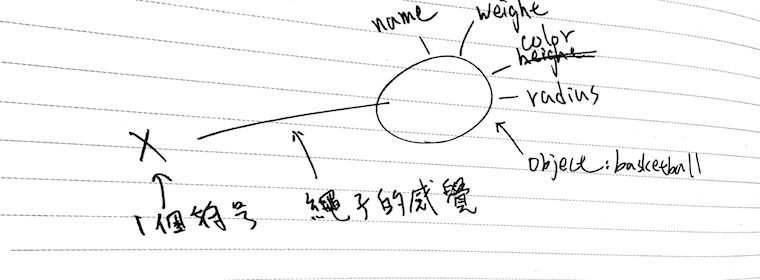 name
weight
color
height
radius
object: basketball
X
1個符号
繩子的感覺